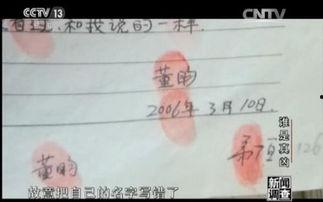 CCTV 13
CNTV
和我说的一样.
董昀
2006年3月10日.
第7页
126
谁是真凶
董昀
新闻
调查
故意把自己的名字写错了